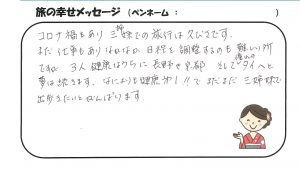 旅の幸せメッセージ (ペンネーム： )
コロナ禍もあり 三姉妹での旅行は久びさです。
まだ仕事もあり なかなか 日程を調整するのも 難しい所
ですね。3人健康なうちに 長野や京都 そして憧れのタイへと
夢は続きます。なによりも健康第1!! で まだまだ 三姉妹で
出歩きたいとがんばります。